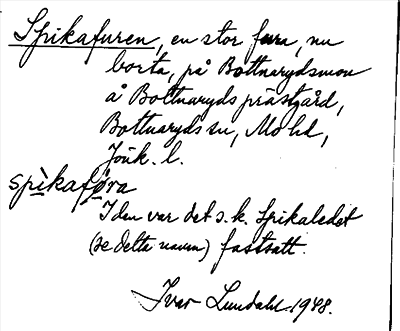 Spikafuren, en stor fura, nu
borta, på Bottnarydsmon
å Bottnaryds prästgård,
Bottnaryds sn, Mo hd,
Jönk. l.
spìkafo̱ra
I den var det s.k. Spikaledet
(se detta namn) fastsatt.
Ivar Lundahl 1948.